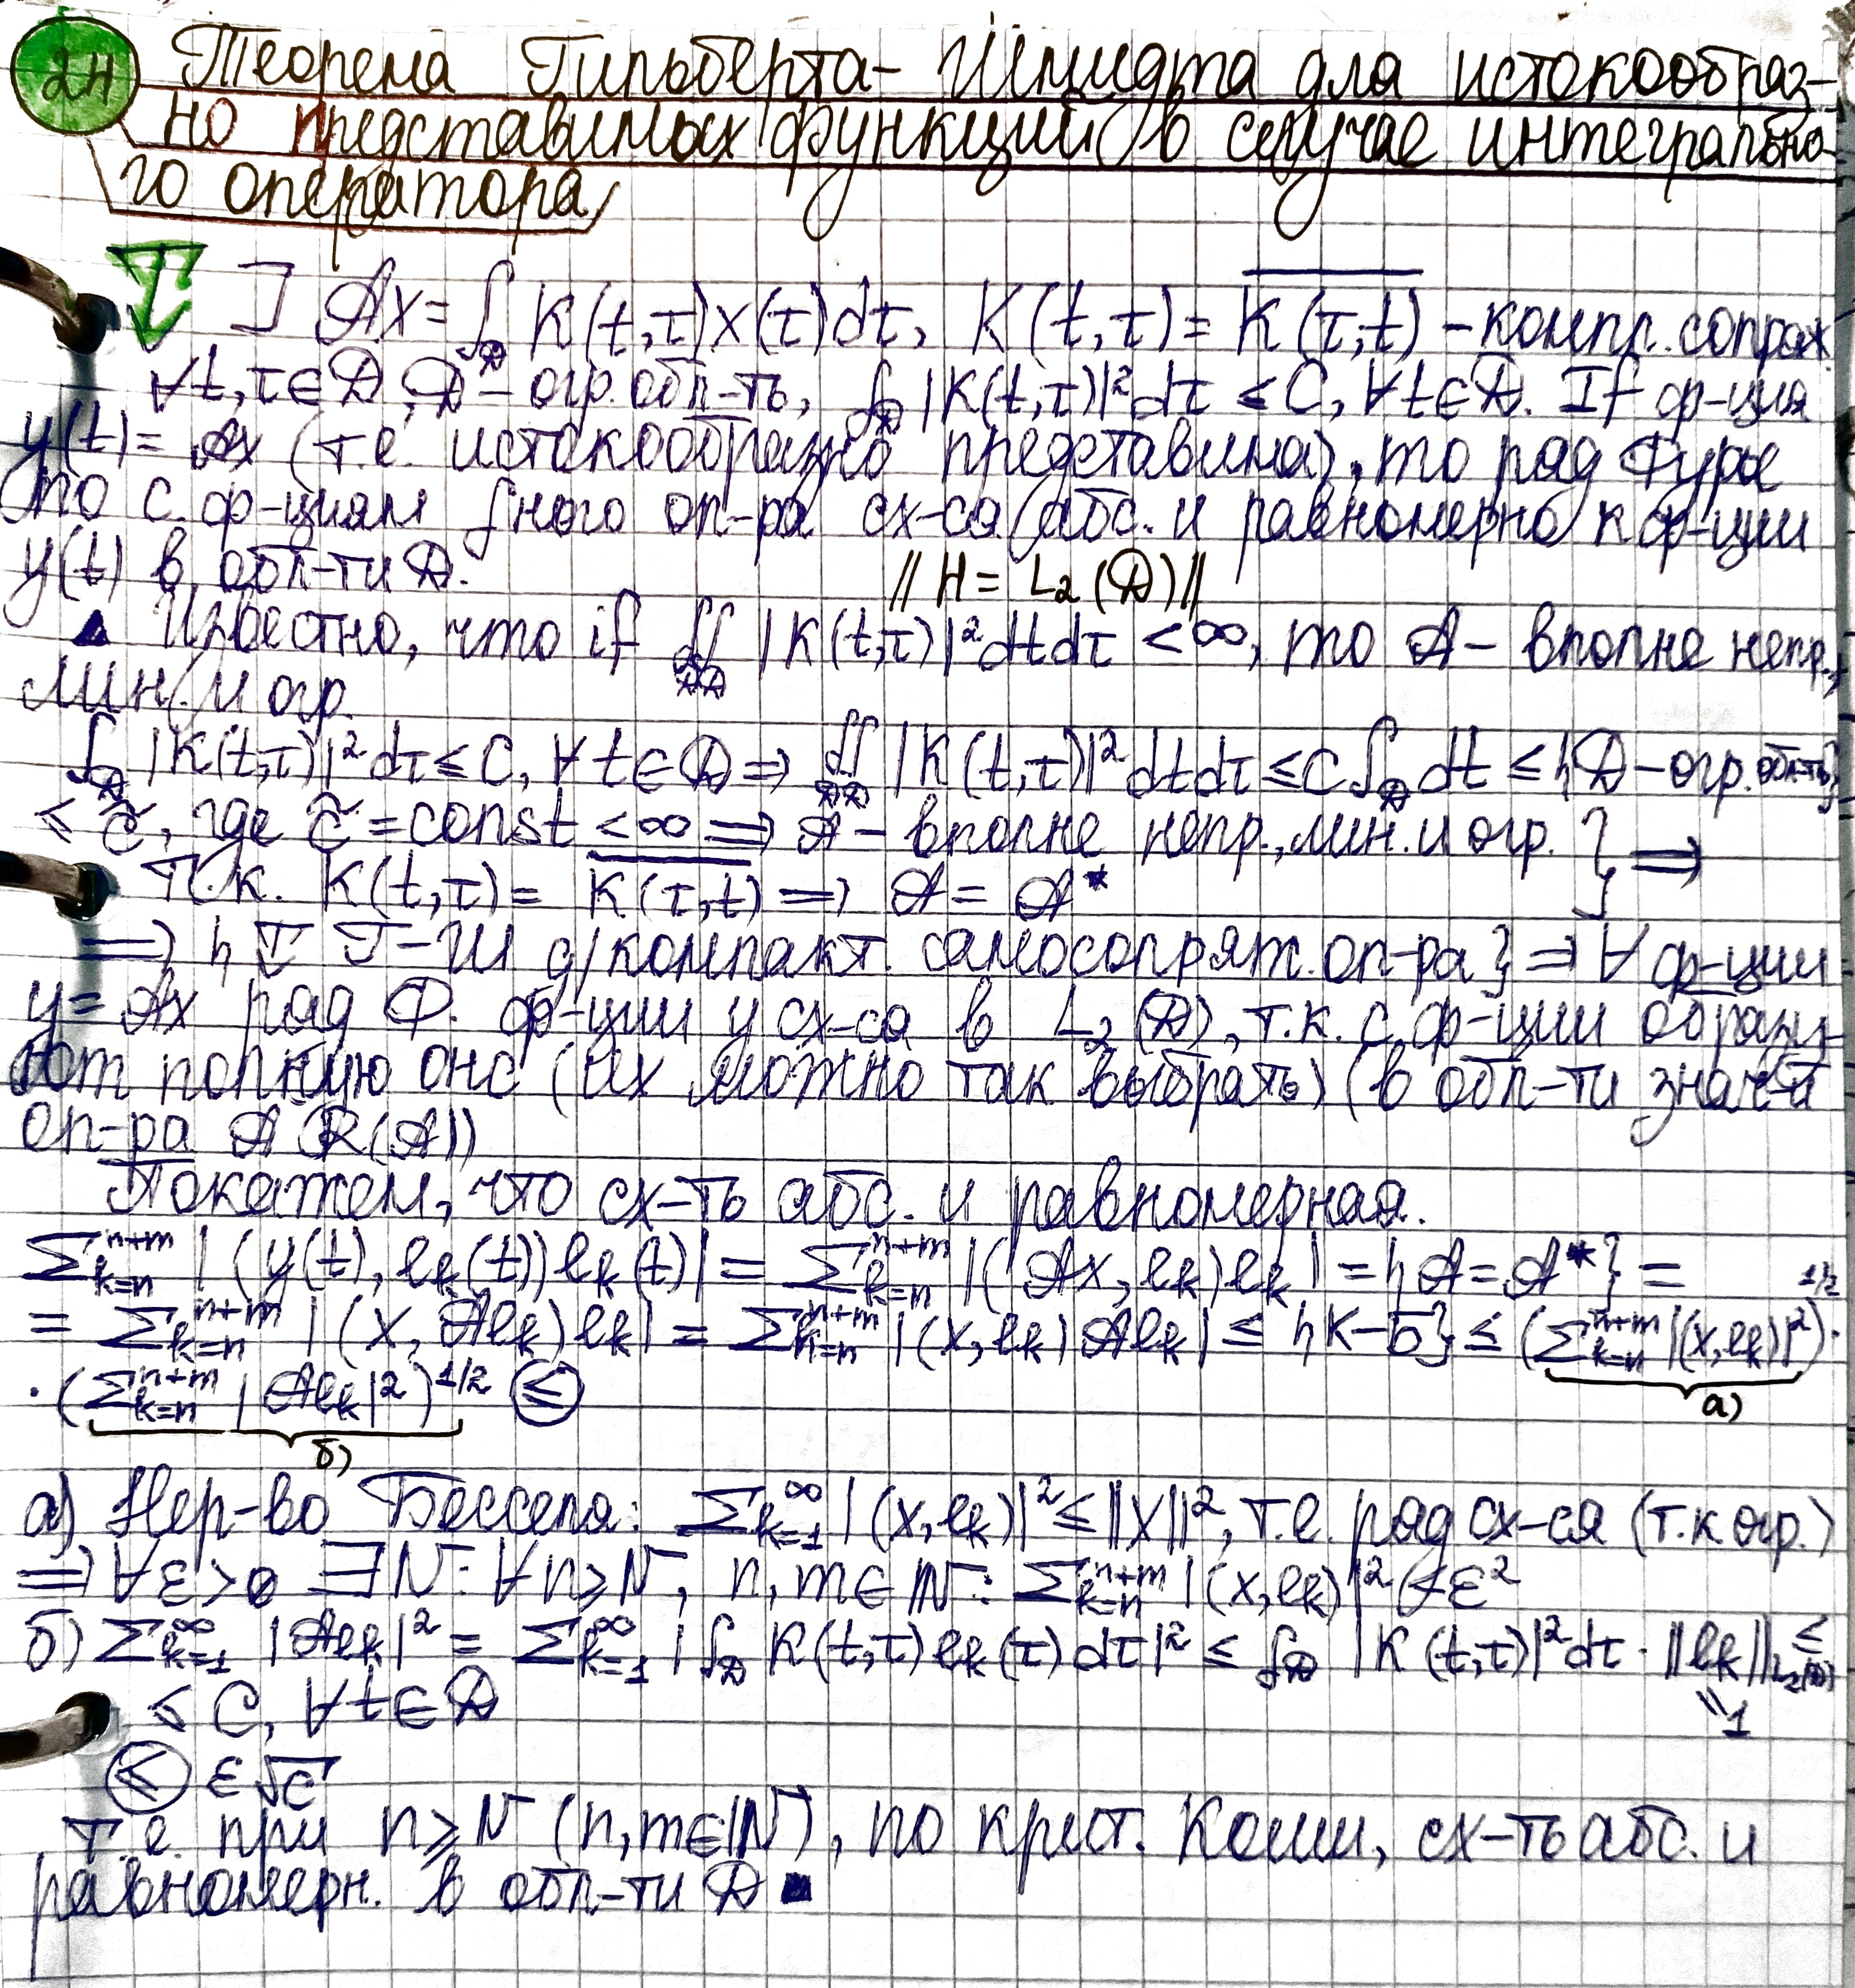 2Н
Теорема Гильберта-Шмидта для истокообраз-
но представимых функций в случае интегрально-
го оператора
T ] Ax = ∫_D K(t,τ)x(τ)dτ, K(t,τ) = \overline{K(τ,t)} – компл. сопряж.
∀t,τ∈D, D – огр. обл-ть, ∫_D |K(t,τ)|²dτ ≤ C, ∀t∈D. If ф-ция
y(t) = Ax (т.е. истокообразно представима), то ряд Фурье
по с. ф-циям ∫ного оп-ра сх-ся абс. и равномерно к ф-ции
y(t) в обл-ти D.
|| H = L₂(D) ||
▲ Известно, что if ∬_{DD} |K(t,τ)|²dtdτ < ∞, то A – вполне непр.,
лин. и огр.
∫_D |K(t,τ)|²dτ ≤ C, ∀t∈D ⇒ ∬_{DD} |K(t,τ)|²dtdτ ≤ C∫_D dt ≤ {D – огр. обл-ть}
≤ C̃, где C̃ = const < ∞ ⇒ A – вполне непр., лин. и огр. } ⇒
Т.к. K(t,τ) = \overline{K(τ,t)} ⇒ A = A*
⇒ {T Г-Ш д/компакт. самосопряж. оп-ра} ⇒ ∀ ф-ции
y = Ax ряд Ф. ф-ции y сх-ся в L₂(D), т.к. с. ф-ции образу-
ют полную онс (их можно так выбрать) (в обл-ти знач-й
оп-ра A (R(A))
Покажем, что сх-ть абс. и равномерная.
Σ_{k=n}^{n+m} |(y(t), e_k(t)) e_k(t)| = Σ_{k=n}^{n+m} |(Ax, e_k) e_k| = {A = A*} =
= Σ_{k=n}^{n+m} |(x, Ae_k) e_k| = Σ_{k=n}^{n+m} |(x, e_k) Ae_k| ≤ {К-Б} ≤ (Σ_{k=n}^{n+m} |(x, e_k)|²)^{1/2} ·
а)
· (Σ_{k=n}^{n+m} |Ae_k|²)^{1/2} ≤
б)
а) Нер-во Бесселя: Σ_{k=1}^{∞} |(x, e_k)|² ≤ ||x||², т.е. ряд сх-ся (т.к огр.)
⇒ ∀ε>0 ∃N: ∀n≥N, n,m∈ℕ: Σ_{k=n}^{n+m} |(x, e_k)|² < ε²
б) Σ_{k=1}^{∞} |Ae_k|² = Σ_{k=1}^{∞} |∫_D K(t,τ) e_k(τ) dτ|² ≤ ∫_D |K(t,τ)|²dτ · ||e_k||_{L₂(D)} ≤
≤ C, ∀t∈D
"1
≤ ε√C
т.е. при n≥N (n,m∈ℕ), по крит. Коши, сх-ть абс. и
равномерн. в обл-ти D ■